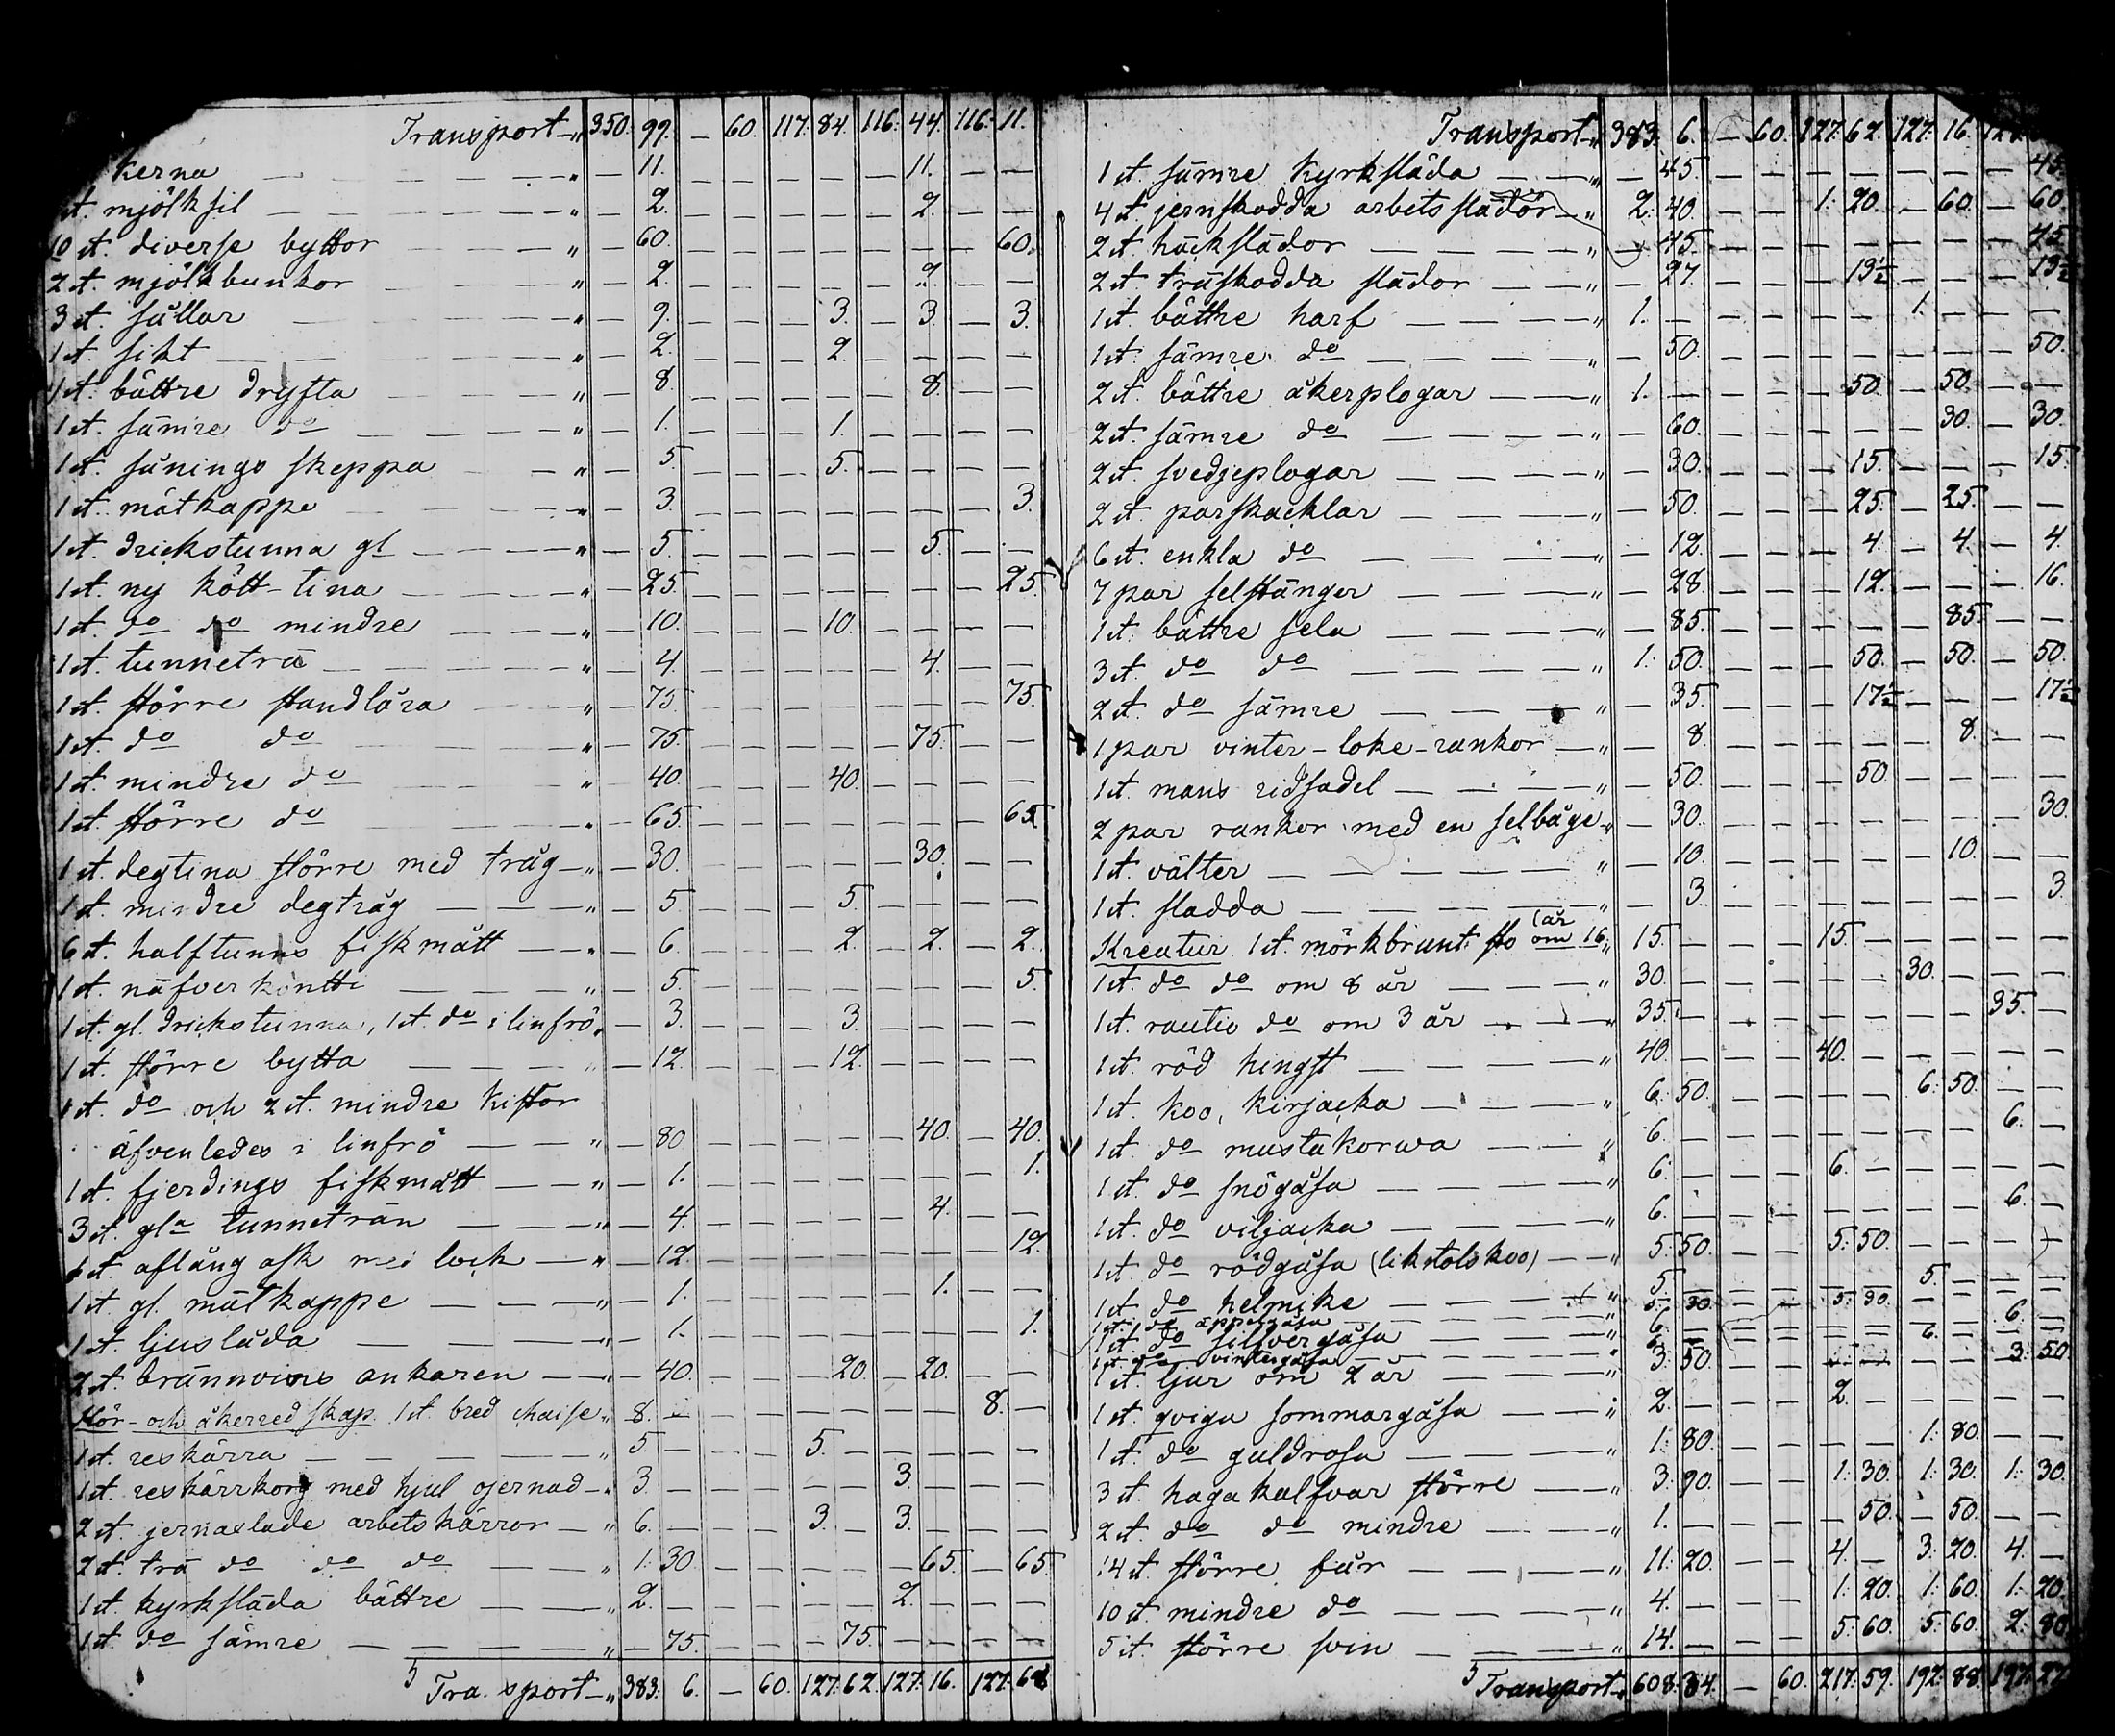 Transport „ 350. 99. — 60. 117. 84. 116. 44. 116. 11.
kerna „ — 11. — — — — — 11. — —
st. mjölksil „ — 2. — — — — — 2. — —
10 st. diverse byttor „ — 60. — — — — — — — 60.
2 st. mjölkbunkor „ — 2. — — — — — 2. — —
3 st. sållar „ — 9. — — — 3. — 3. — 3.
1 st. sikt „ — 2. — — — 2. — — — —
1 st. bättre dryfta „ — 8. — — — — — 8. — —
1 st. sämre do „ — 1. — — — 1. — — — —
1 st. sånings skeppa „ — 5. — — — 5. — — — —
1 st. måtkappe „ — 3. — — — — — — — 3.
1 st. drickstunna gl „ — 5. — — — — — 5. — —
1 st. ny kött-tina „ — 25. — — — — — — — 25.
1 st. do do mindre „ — 10. — — — 10. — — — —
1 st. tunneträ „ — 4. — — — — — 4. — —
1 st. större standlåra „ — 75. — — — — — — — 75.
1 st. do do „ — 75. — — — — — 75. — —
1 st. mindre do „ — 40. — — — 40. — — — —
1 st. större do „ — 65. — — — — — — — 65.
1 st. degtina större med tråg „ — 30. — — — — — 30. — —
1 st. mindre degtråg „ — 5. — — — 5. — — — —
6 st. halftunns fiskmått „ — 6. — — — 2. — 2. — 2.
1 st. näfverkontti „ — 5. — — — — — — — 5.
1 st. gl. drickstunna, 1 st. do i linfrö „ — 3. — — — 3. — — — —
1 st. större bytta „ — 12. — — — 12. — — — —
1 st. do och 2 st. mindre kistor
äfvenledes i linfrö „ — 80 — — — — — 40. — 40.
1 st. fjerdings fiskmått „ — 1. — — — — — — — 1.
3 st. gla tunneträn „ — 4. — — — — — 4. — —
1 st. aflång ask med lock „ — 12. — — — — — — — 12.
1 st. gl. måtkappe „ — 1. — — — — — 1. — —
1 st. ljuslåda „ — 1. — — — — — — — 1.
2 st. brännvins ankaren „ — 40. — — — 20. — 20. — —
Kör- och åkerredskap. 1 st. bred chaise „ 8. — — — — — — — 8. —
1 st. reskärra „ 5. — — — 5. — — — — —
1 st. reskärrkorg med hjul ojernad „ 3. — — — — — 3. — — —
2 st. jernaxlade arbetskärror „ 6. — — — 3. — 3. — — —
2 st. trä do do do „ 1. 30. — — — — — 65. — 65.
1 st. kyrksläda bättre „ 2. — — — — — 2. — — —
1 st. do sämre „ — 75. — — — 75. — — — —
Tra. sport „ 383. 6. — 60. 127. 62. 127. 16. 127. 61.
Transport „ 383. 6. — 60. 127. 62. 127. 16.
1 st. sämre kyrksläda „ — 45. — — — — — — — 45.
4 st. jernskodda arbetsslädor „ 2. 40. — — 1. 20. — 60. — 60.
2 st. häckslädor „ — 45. — — — — — — — 45.
2 st. träskodda slädor „ — 27. — — — 13½ — — — 13½
1 st. bättre harf „ 1. — — — — — 1. — — —
1 st. sämre do „ — 50. — — — — — — — 50.
2 st. bättre åkerplogar „ 1. — — — — 50. — 50. — —
2 st. sämre do „ — 60. — — — — — 30. — 30.
2 st. svedjeplogar „ — 30. — — — 15. — — — 15.
2 st. parskacklar „ — 50. — — — 25. — 25. — —
6 st. enkla do „ — 12. — — — 4. — 4. — 4.
7 par selstänger „ — 28. — — — 12. — — — 16.
1 st. bättre sela „ — 85. — — — — — 85. — —
3 st. do do „ 1. 50. — — — 50. — 50. — 50.
2 st. do sämre „ — 35. — — — 17½ — — — 17½
1 par vinter-loke-rankor „ — 8. — — — — — 8. — —
1 st. mans ridsadel „ — 50. — — — 50. — — — —
2 par rankor med en selbåge „ — 30. — — — — — — — 30.
1 st. välter „ — 10. — — — — — 10. — —
1 st. sladda „ — 3. — — — — — — — 3.
Kreatur. 1 st. mörkbrunt sto om 16 (år „ 15. — — — 15. — — — — —
1 st. do do om 8 år „ 30. — — — — — 30. — — —
1 st. rautio do om 3 år „ 35. — — — — — — — 35. —
1 st. röd hingst „ 40. — — — 40. — — — — —
1 st. koo, kirjacka „ 6. 50. — — — — 6. 50. — —
1 st. do mustakorwa „ 6. — — — — — — — 6. —
1 st. do snögåsa „ 6. — — — 6. — — — — —
1 st. do viljacka „ 6. — — — — — — — 6. —
1 st. do rödgåsa (likstolskoo) „ 5. 50. — — 5. 50. — — — —
1 st. do helmike „ 5. — — — — — 5. — — —
1 st. do äppelgåsa „ 5. 30. — — 5. 30. — — — —
1 st. do silfvergåsa „ 6. — — — — — — — 6. —
1 st. do vintergåsa „ 6. — — — — — 6. — — —
1 st. tjur om 2 år „ 3. 50. — — — — — — 3. 50.
1 st. qviga sommargåsa „ 2. — — — 2. — — — — —
1 st. do guldrosa „ 1. 80. — — — — 1. 80. — —
3 st. hagakalfvar större „ 3. 90. — — 1. 30. 1. 30. 1. 30.
2 st. do do mindre „ 1. — — — — 50. — 50. — —
14 st. större får „ 11. 20. — — 4. — 3. 20. 4. —
10 st. mindre do „ 4. — — — 1. 20. 1. 60. 1. 20.
5 st. större svin „ 14. — — — 5. 60. 5. 60. 2. 80.
Transport „ 608. 34. — 60. 217. 59. 192. 88. 197. 27.